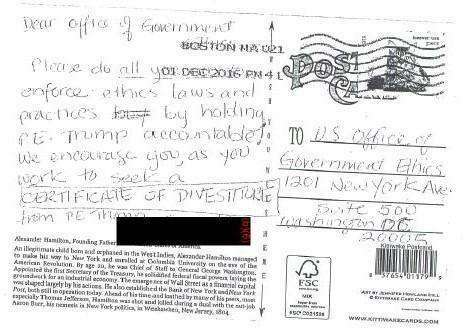 Dear Office of Government
BOSTON MA 021
Please do all
01 DEC 2016 PM 4 L
enforce ethics laws and
practices by holding
P.E. Trump accountable!
We encourage you, as you
work to seek a
CERTIFICATE OF DIVESTITURE
from PE Trump
POST
TO U.S. Office of
Government Ethics
1201 New York Ave.
Suite 500
Washington DC
20005
Alexander Hamilton, Founding Father
of America.
An illegitimate child born and orphaned in the West Indies, Alexander Hamilton managed
to make his way to New York and enrolled at Columbia University on the eve of the
American Revolution. By age 20, he was Chief of Staff to General George Washington.
Appointed the first Secretary of the Treasury, he solidified federal fiscal powers, laying the
groundwork for an industrial economy. The emergence of Wall Street as a financial capital
was shaped largely by his actions. He also established the Bank of New York and New York
Post, both still in operation today. Ahead of his time and hated by many of his peers, most
especially Thomas Jefferson, Hamilton was shot and killed during a duel with the out-job
Aaron Burr, his nemesis in New York politics, in Weehawken, New Jersey, 1804.
FSC
www.fsc.org
MIX
FSC® C021526
8 37654 01179
ART BY JENNIFER HOWLAND HILL
© KITTIWAKE CARD COMPANY
WWW.KITTIWAKECARDS.COM